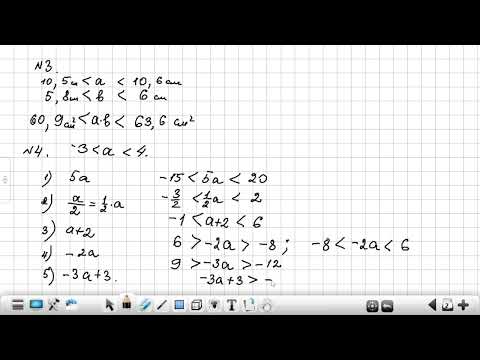 №3.
10,5см < a < 10,6 см
5,8см < в < 6 см
60,9см² < a·в < 63,6 см²
№4. -3 < a < 4.
1) 5a -15 < 5a < 20
2) a/2 = 1/2·a -3/2 < 1/2a < 2
3) a+2 -1 < a+2 < 6
4) -2a 6 > -2a > -8; -8 < -2a < 6
5) -3a+3. 9 > -3a > -12
-3a+3 > -
2